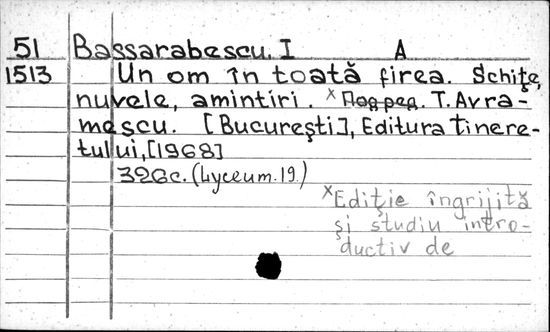 51 Bassarabescu, I A
1513 Un om în toată firea. Schiţe,
nuvele, amintiri. × Под ред. T. Avra-
mescu. [Bucureşti], Editura tinere-
tului, [1968]
326c. (Lyceum. 19.)
× Ediţie îngrijită
şi studiu intro-
ductiv de